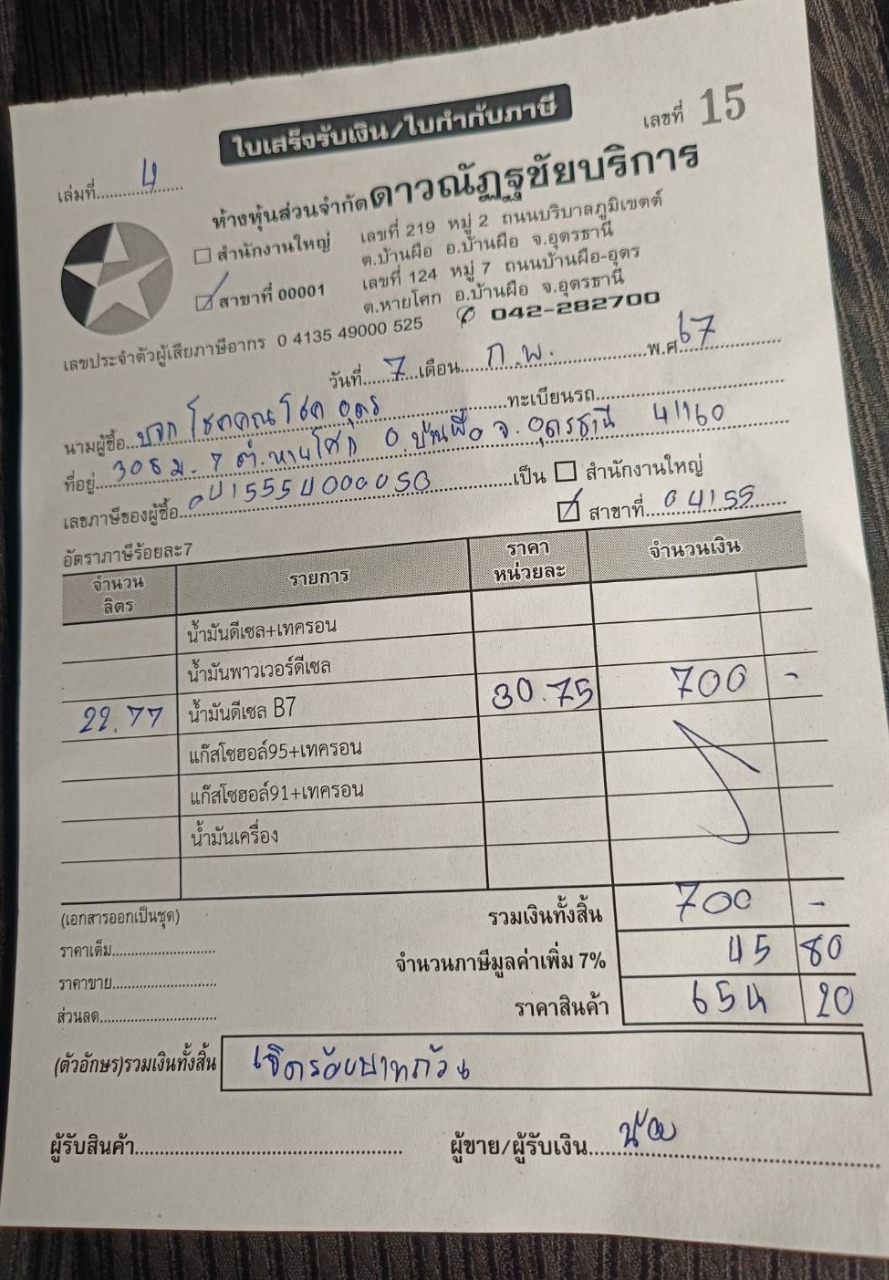 ใบเสร็จรับเงิน/ใบกำกับภาษี
เล่มที่ 4 เลขที่ 15
ห้างหุ้นส่วนจำกัดดาวณัฏฐชัยบริการ
สำนักงานใหญ่ เลขที่ 219 หมู่ 2 ถนนบริบาลภูมิเขตต์
ต.บ้านผือ อ.บ้านผือ จ.อุดรธานี
สาขาที่ 00001 เลขที่ 124 หมู่ 7 ถนนบ้านผือ-อุดร
ต.หายโศก อ.บ้านผือ จ.อุดรธานี
เลขประจำตัวผู้เสียภาษีอากร 0 4135 49000 525 042-282700
วันที่ 7 เดือน ก.พ. พ.ศ. 67
นามผู้ซื้อ บจก โชคคณโชค อุดร ทะเบียนรถ
ที่อยู่ 308 ม.7 ต.หายโศก อ.บ้านผือ จ.อุดรธานี 41160
เลขภาษีของผู้ซื้อ เป็น สำนักงานใหญ่
สาขาที่ 04155
อัตราภาษีร้อยละ7
จำนวนลิตร รายการ ราคาหน่วยละ จำนวนเงิน
น้ำมันดีเซล+เทครอน
น้ำมันพาวเวอร์ดีเซล
22.77 น้ำมันดีเซล B7 30.75 700 -
แก๊สโซฮอล์95+เทครอน
แก๊สโซฮอล์91+เทครอน
น้ำมันเครื่อง
(เอกสารออกเป็นชุด) รวมเงินทั้งสิ้น 700 -
ราคาเต็ม จำนวนภาษีมูลค่าเพิ่ม 7% 45 80
ราคาขาย ราคาสินค้า 654 20
ส่วนลด
(ตัวอักษร)รวมเงินทั้งสิ้น เจ็ดร้อยบาทถ้วน
ผู้รับสินค้า ผู้ขาย/ผู้รับเงิน น้อย